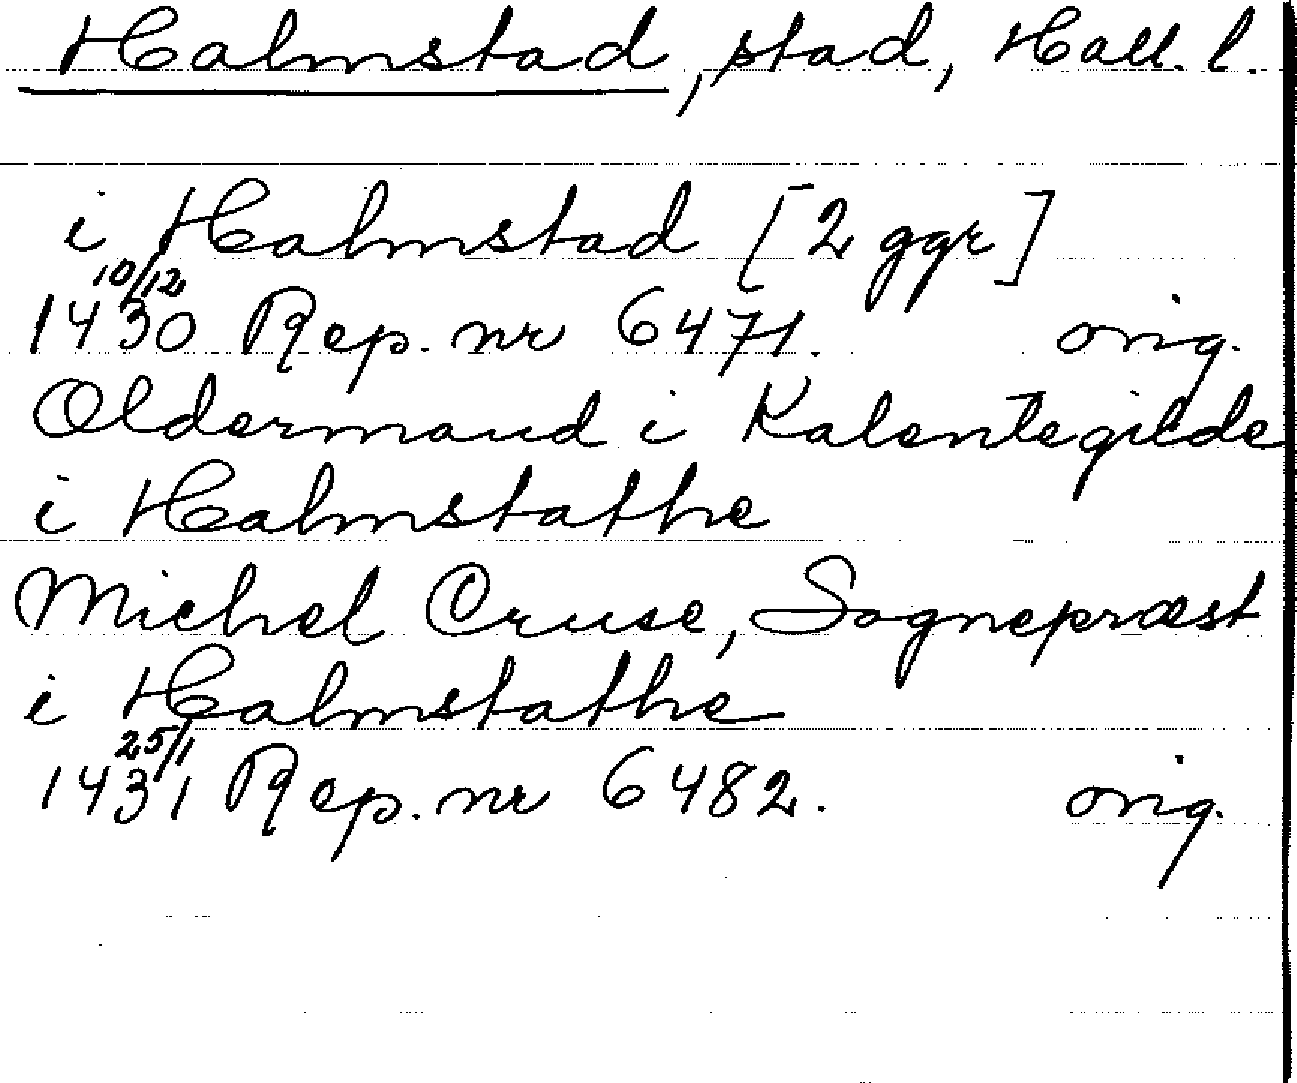 Halmstad, stad, Hall. l.
i Halmstad [2 ggr]
10/12
1430 Rep. nr 6471. orig.
Oldermand i Kalentegilde
i Halmstathe
Michel Cruse, Sognepræst
i Halmstathe
25/1
1431 Rep. nr 6482. orig.